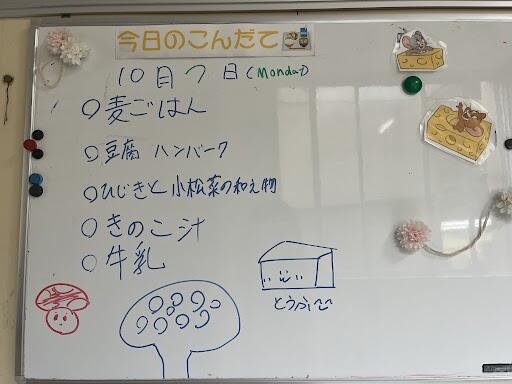 今日のこんだて
10月7日(Monday)
○麦ごはん
○豆腐 ハンバーグ
○ひじきと小松菜の和え物
○きのこ汁
○牛乳
とうふ